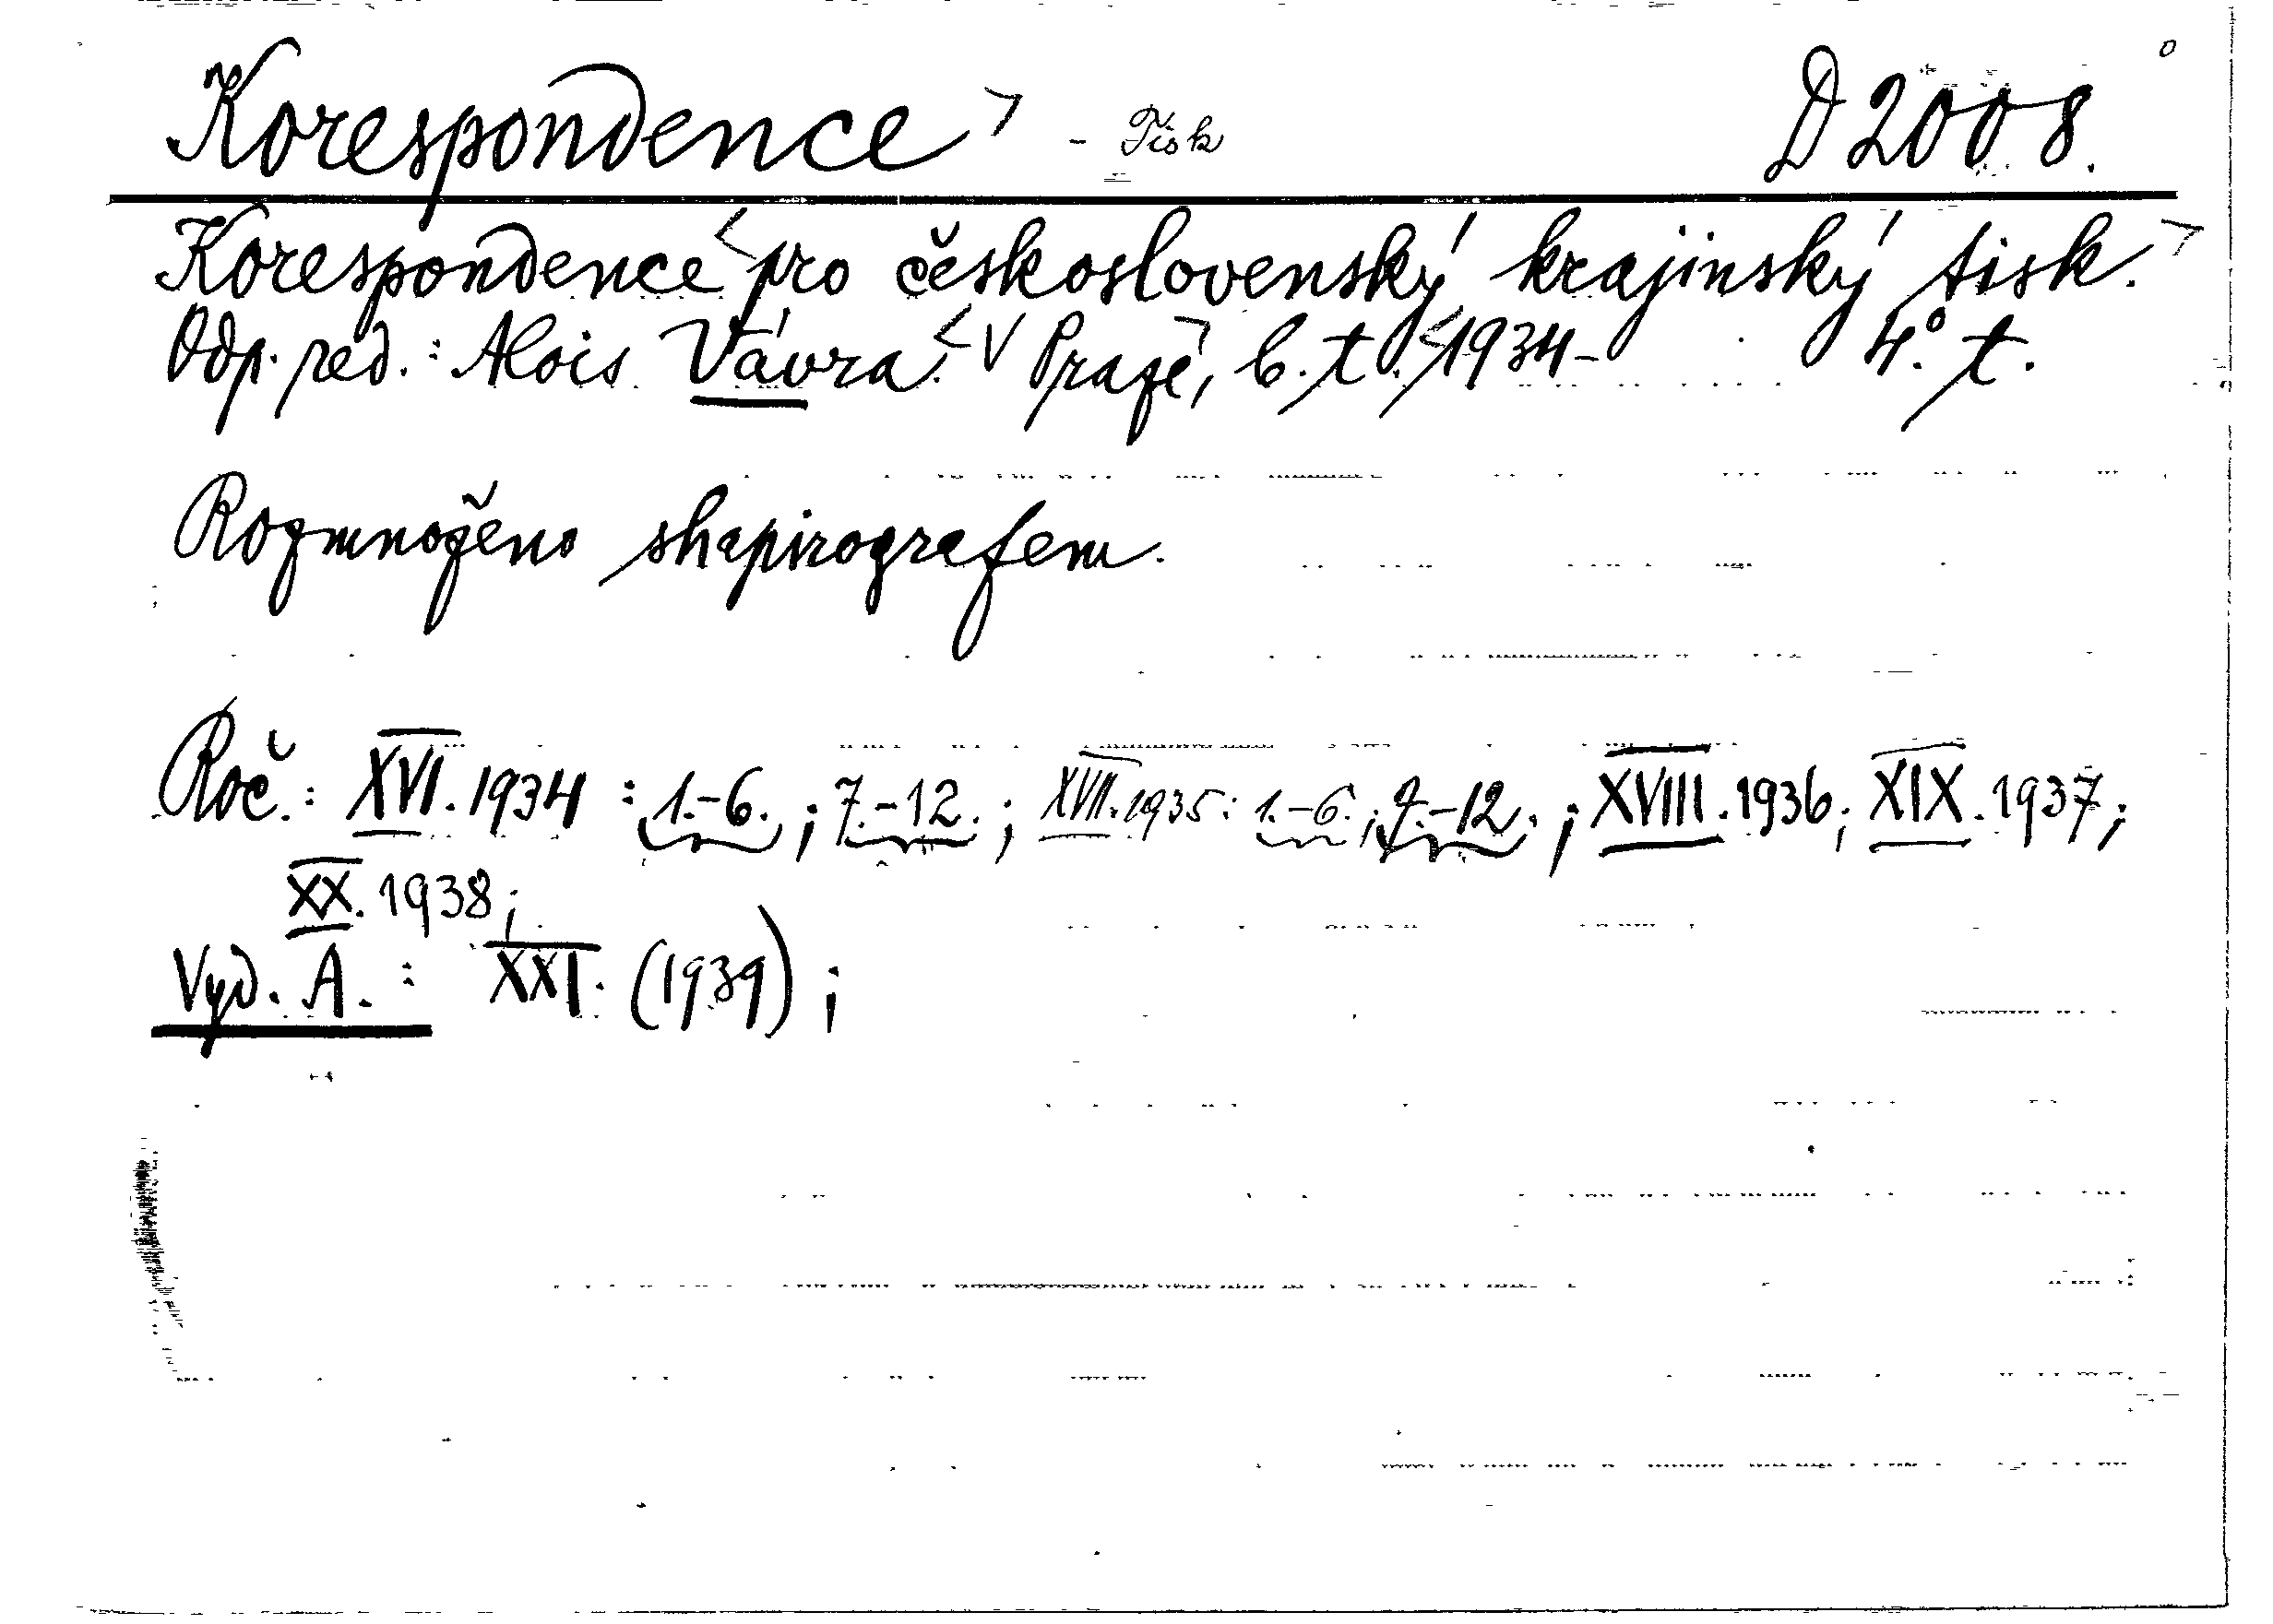 Korespondence - Tisk D 2008.
Korespondence pro československý krajinský tisk.
Odp. red.: Alois Vávra. V Praze, b. t. 1934- 4° t.
Rozmnoženo shapirografem.
Roč.: XVI. 1934 : 1.-6. ; 7.-12. ; XVII. 1935 : 1.-6. ; 7.-12. ; XVIII. 1936 ; XIX. 1937 ;
XX. 1938 ;
Vyd. A. : XXI. (1939) ;